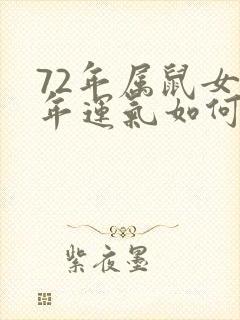 72年属鼠女
年運氣如何
紫夜墨